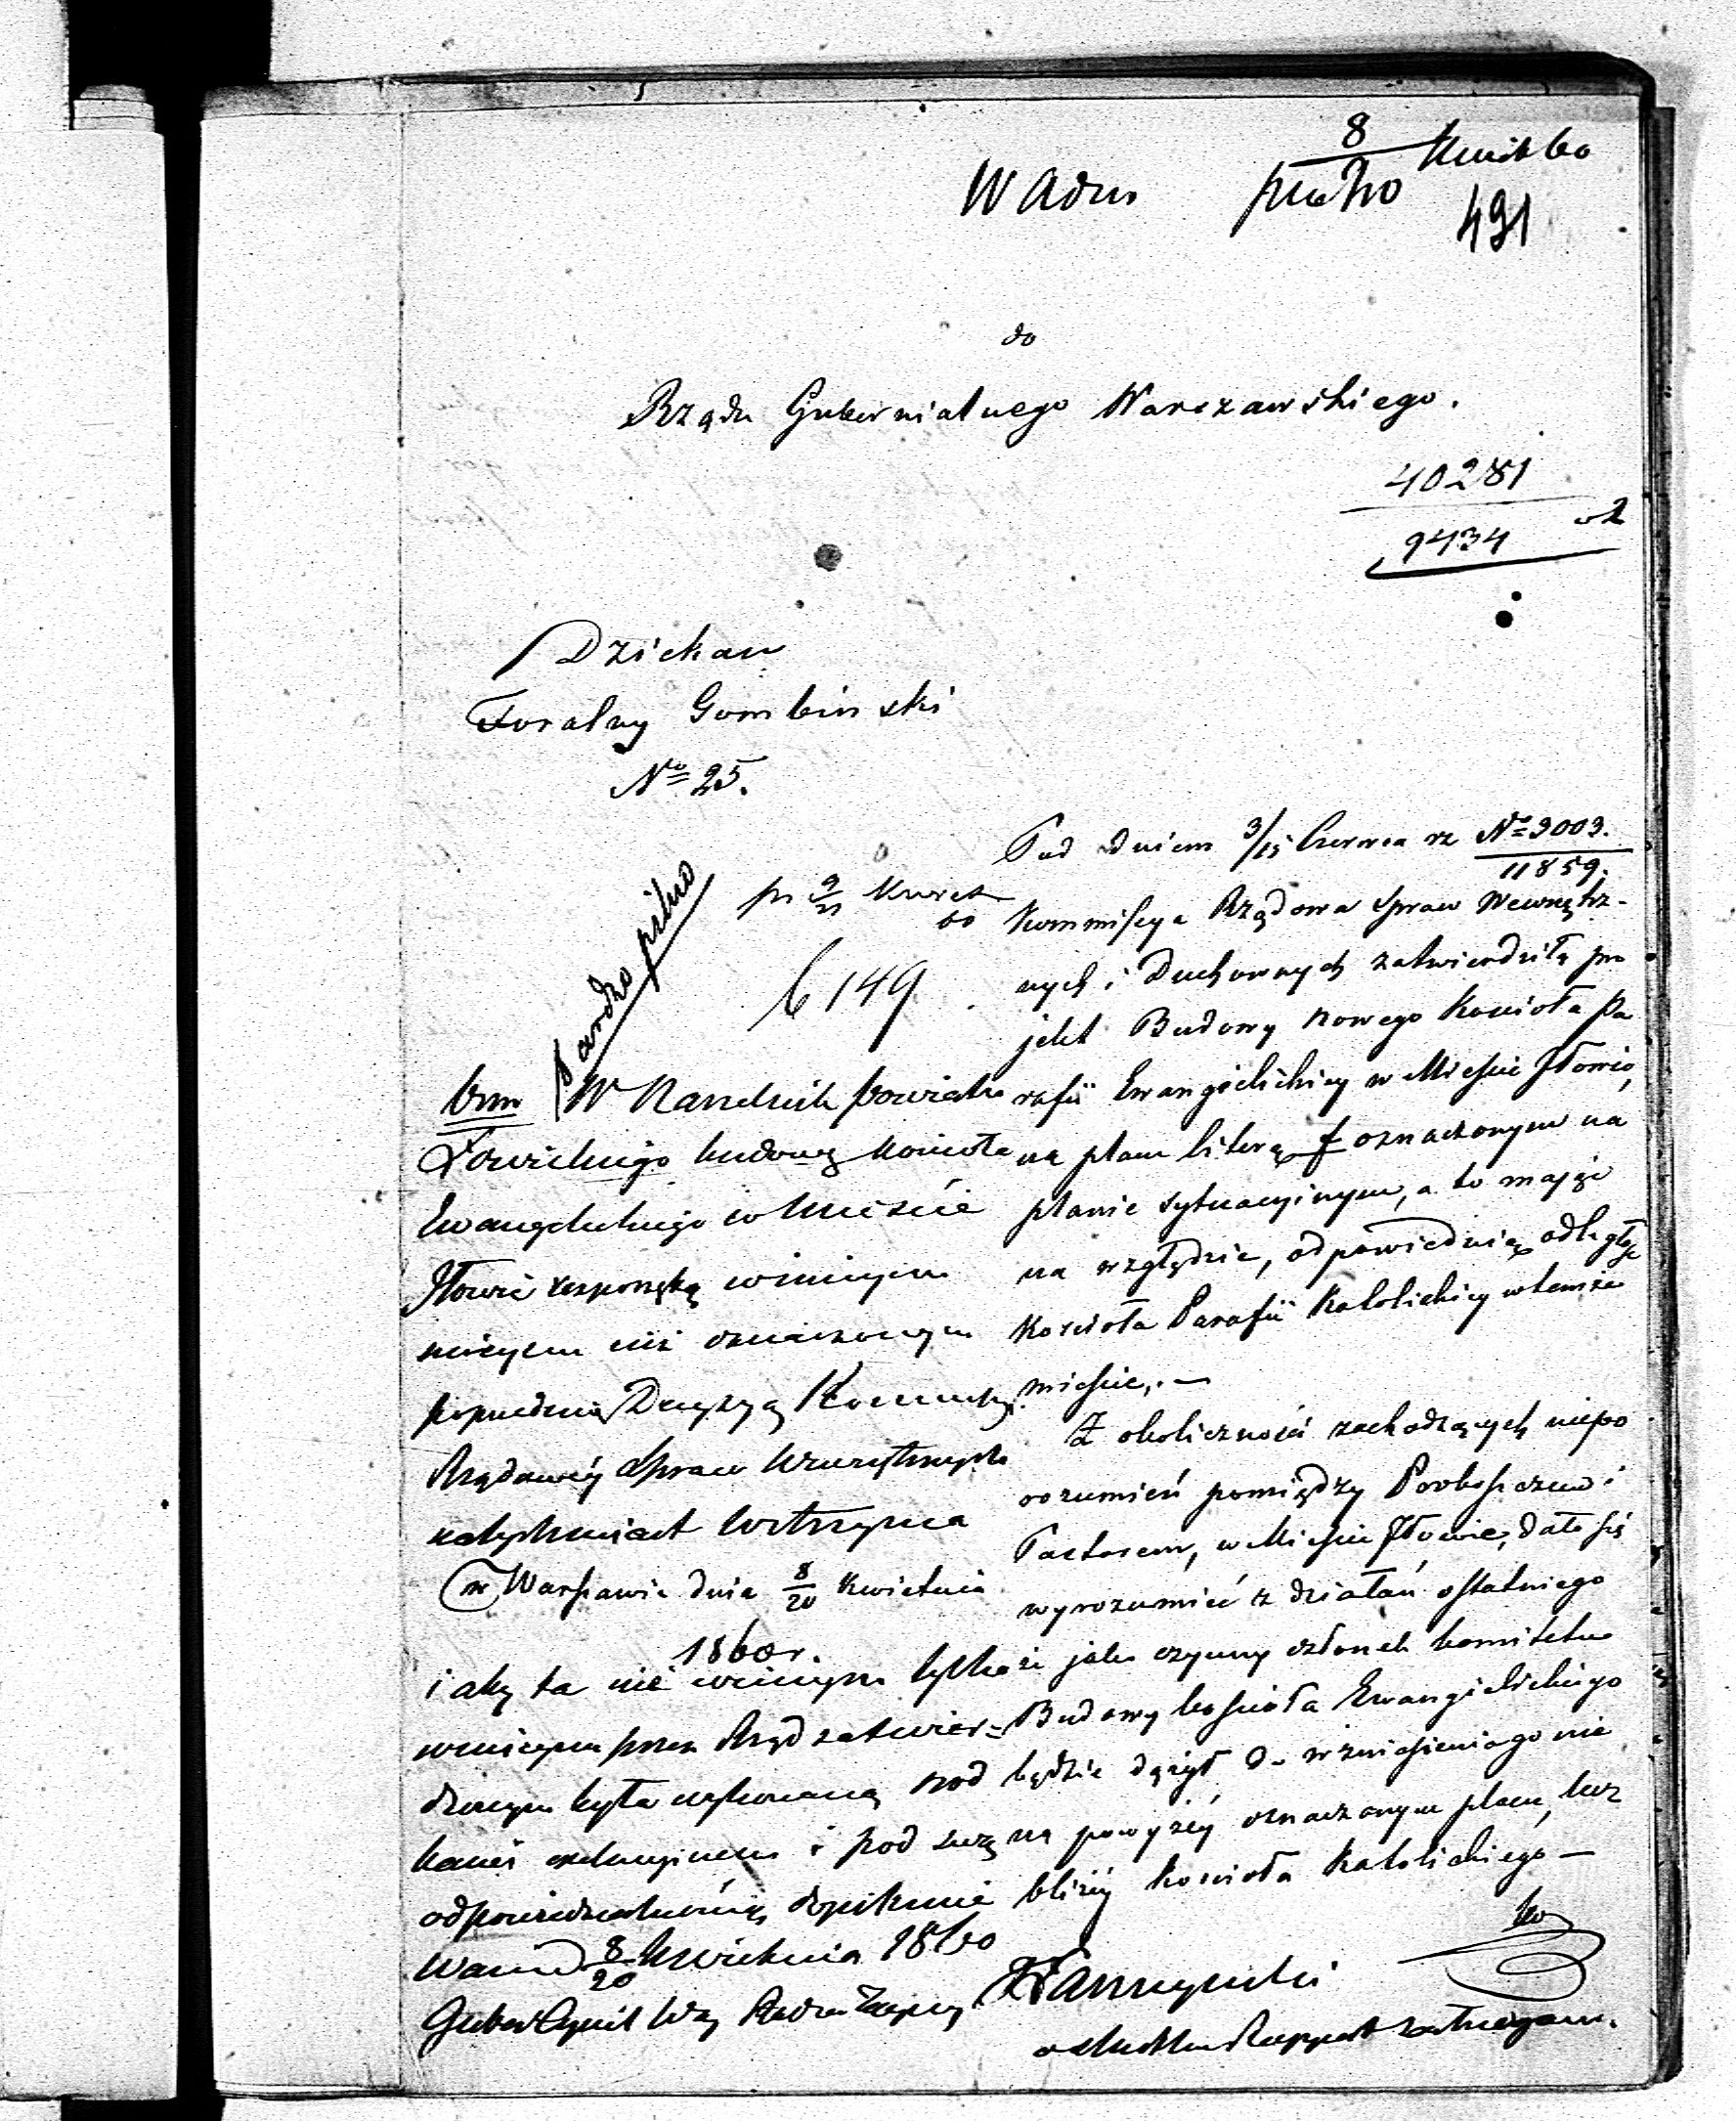 8 Kwiet 60
W Adm pilno
491
do
Rządu Gubernialnego Warszawskiego.
40281
9434
Dziekan
Foralny Gombinski
No 25.
Bardzo pilno
pr 9/21 Kwiet
60
6149
Pod dniem 3/15 Czerwca rz No 3003.
11859.
Kommissya Rządowa Spraw Wewnętrz-
nych i Duchownych zatwierdziła pro
jekt Budowy nowego Kościoła Pa
rafii Ewangielickiey w Mieście Iłowie,
na placu literą f oznaczonym na
planie sytuacyinym, a to mając
na względzie, odpowiednią odległość
Kościoła Parafii Katolickiey w temże
mieście. —
Z okoliczności zachodzących niepo
rozumień pomiędzy Proboszczem i
Pastorem, w Mieście Iłowie, dało się
wyrozumieć z działań ostatniego
że jako czynny członek komitetu
Budowy kościoła Ewangielickiego
będzie dążył do wzniesienia go nie
na powyżéy oznaczonym placu, lecz
bliżéy kościoła Katolickiego —
W Naczelnik Powiatu
Łowickiego budowę kościoła
Ewangelickiego w Mieście
Iłowie rozpoczętą w innym
miejscu niż oznaczonym
poprzednią Decyzyą Kommissyi
Rządowéy Spraw Wewnętrznych
natychmiast wstrzyma
w Warszawie dnia 8/20 Kwietnia
1860 r.
i aby ta nie w innym tylko
w miejscu przez Rząd zatwier-
dzonym była wykonaną pod
i pod swą
odpowiedzialnością dopilnuje
8/20 Kwietnia 1860